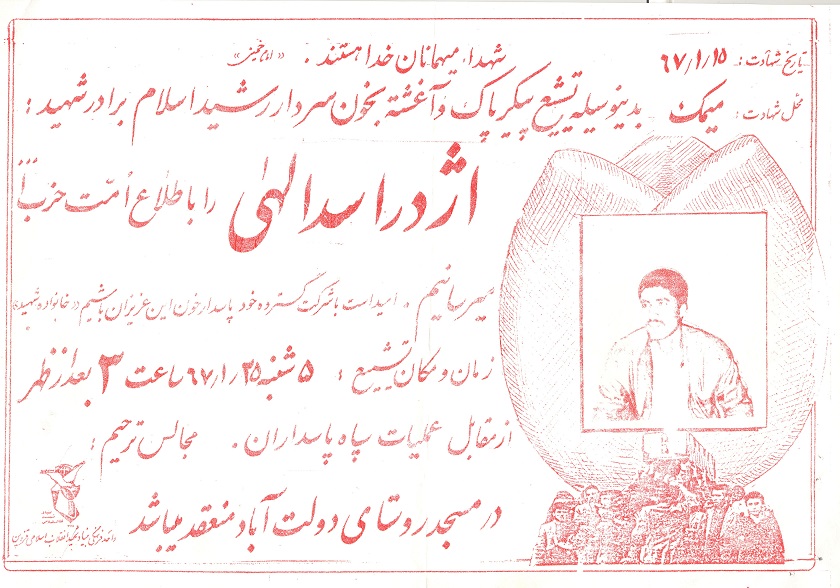 شهداء میهمانان خدا هستند . «امام خمینی»
تاریخ شهادت : ۶۷/۱/۱۵
محل شهادت : میمک
بدینوسیله تشییع پیکر پاک و آغشته بخون سردار رشید اسلام برادر شهید :
اژدر اسدالهی
را باطلاع اُمّت حزب ا...
میرسانیم . امید است با شرکت گسترده خود پاسدار خون این عزیزان باشیم در خانواده شهید
زمان و مکان تشییع : ۵ شنبه ۶۷/۱/۲۵ ساعت ۳ بعد از ظهر
از مقابل عملیات سپاه پاسداران . مجالس ترحیم :
در مسجد روستای دولت آباد منعقد میباشد
واحد فرهنگی بنیاد شهید انقلاب اسلامی قزوین